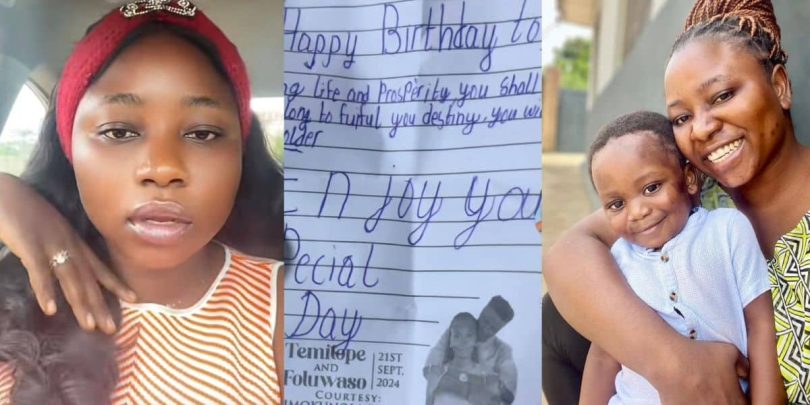 Happy Birthday to
life and Prosperity you Shall
long to fulful you destiny, you
older
Enjoy you
Special
Day
Temitope
AND
Foluwaso
COURTESY:
21ST
SEPT,
2024